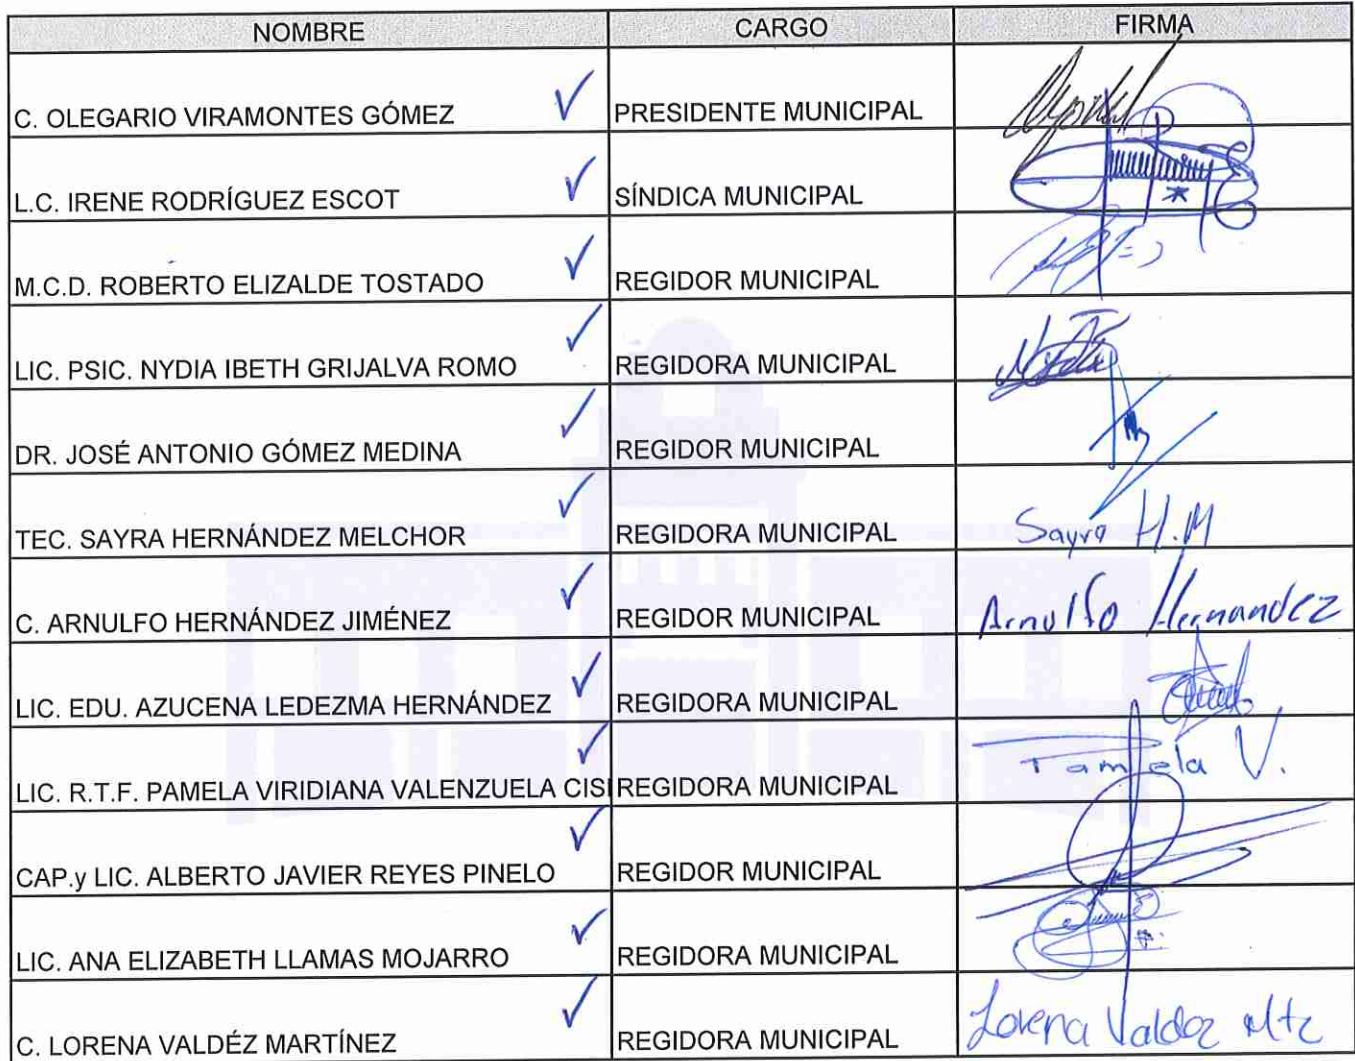 NOMBRE CARGO FIRMA
C. OLEGARIO VIRAMONTES GÓMEZ PRESIDENTE MUNICIPAL
L.C. IRENE RODRÍGUEZ ESCOT SÍNDICA MUNICIPAL
M.C.D. ROBERTO ELIZALDE TOSTADO REGIDOR MUNICIPAL
LIC. PSIC. NYDIA IBETH GRIJALVA ROMO REGIDORA MUNICIPAL
DR. JOSÉ ANTONIO GÓMEZ MEDINA REGIDOR MUNICIPAL
TEC. SAYRA HERNÁNDEZ MELCHOR REGIDORA MUNICIPAL Sayra H.M
C. ARNULFO HERNÁNDEZ JIMÉNEZ REGIDOR MUNICIPAL Arnulfo Hernandez
LIC. EDU. AZUCENA LEDEZMA HERNÁNDEZ REGIDORA MUNICIPAL
LIC. R.T.F. PAMELA VIRIDIANA VALENZUELA CIS REGIDORA MUNICIPAL Pamela V.
CAP.y LIC. ALBERTO JAVIER REYES PINELO REGIDOR MUNICIPAL
LIC. ANA ELIZABETH LLAMAS MOJARRO REGIDORA MUNICIPAL
C. LORENA VALDÉZ MARTÍNEZ REGIDORA MUNICIPAL Lorena Valdez Mtz